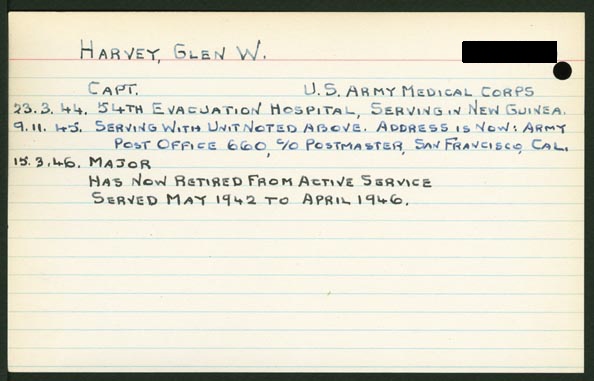 HARVEY, GLEN W.
CAPT. U.S. ARMY MEDICAL CORPS
23.3.44. 54TH EVACUATION HOSPITAL, SERVING IN NEW GUINEA.
9.11.45. SERVING WITH UNIT NOTED ABOVE. ADDRESS IS NOW: ARMY
POST OFFICE 660, C/O POSTMASTER, SAN FRANCISCO, CAL.
15.3.46. MAJOR
HAS NOW RETIRED FROM ACTIVE SERVICE
SERVED MAY 1942 TO APRIL 1946.